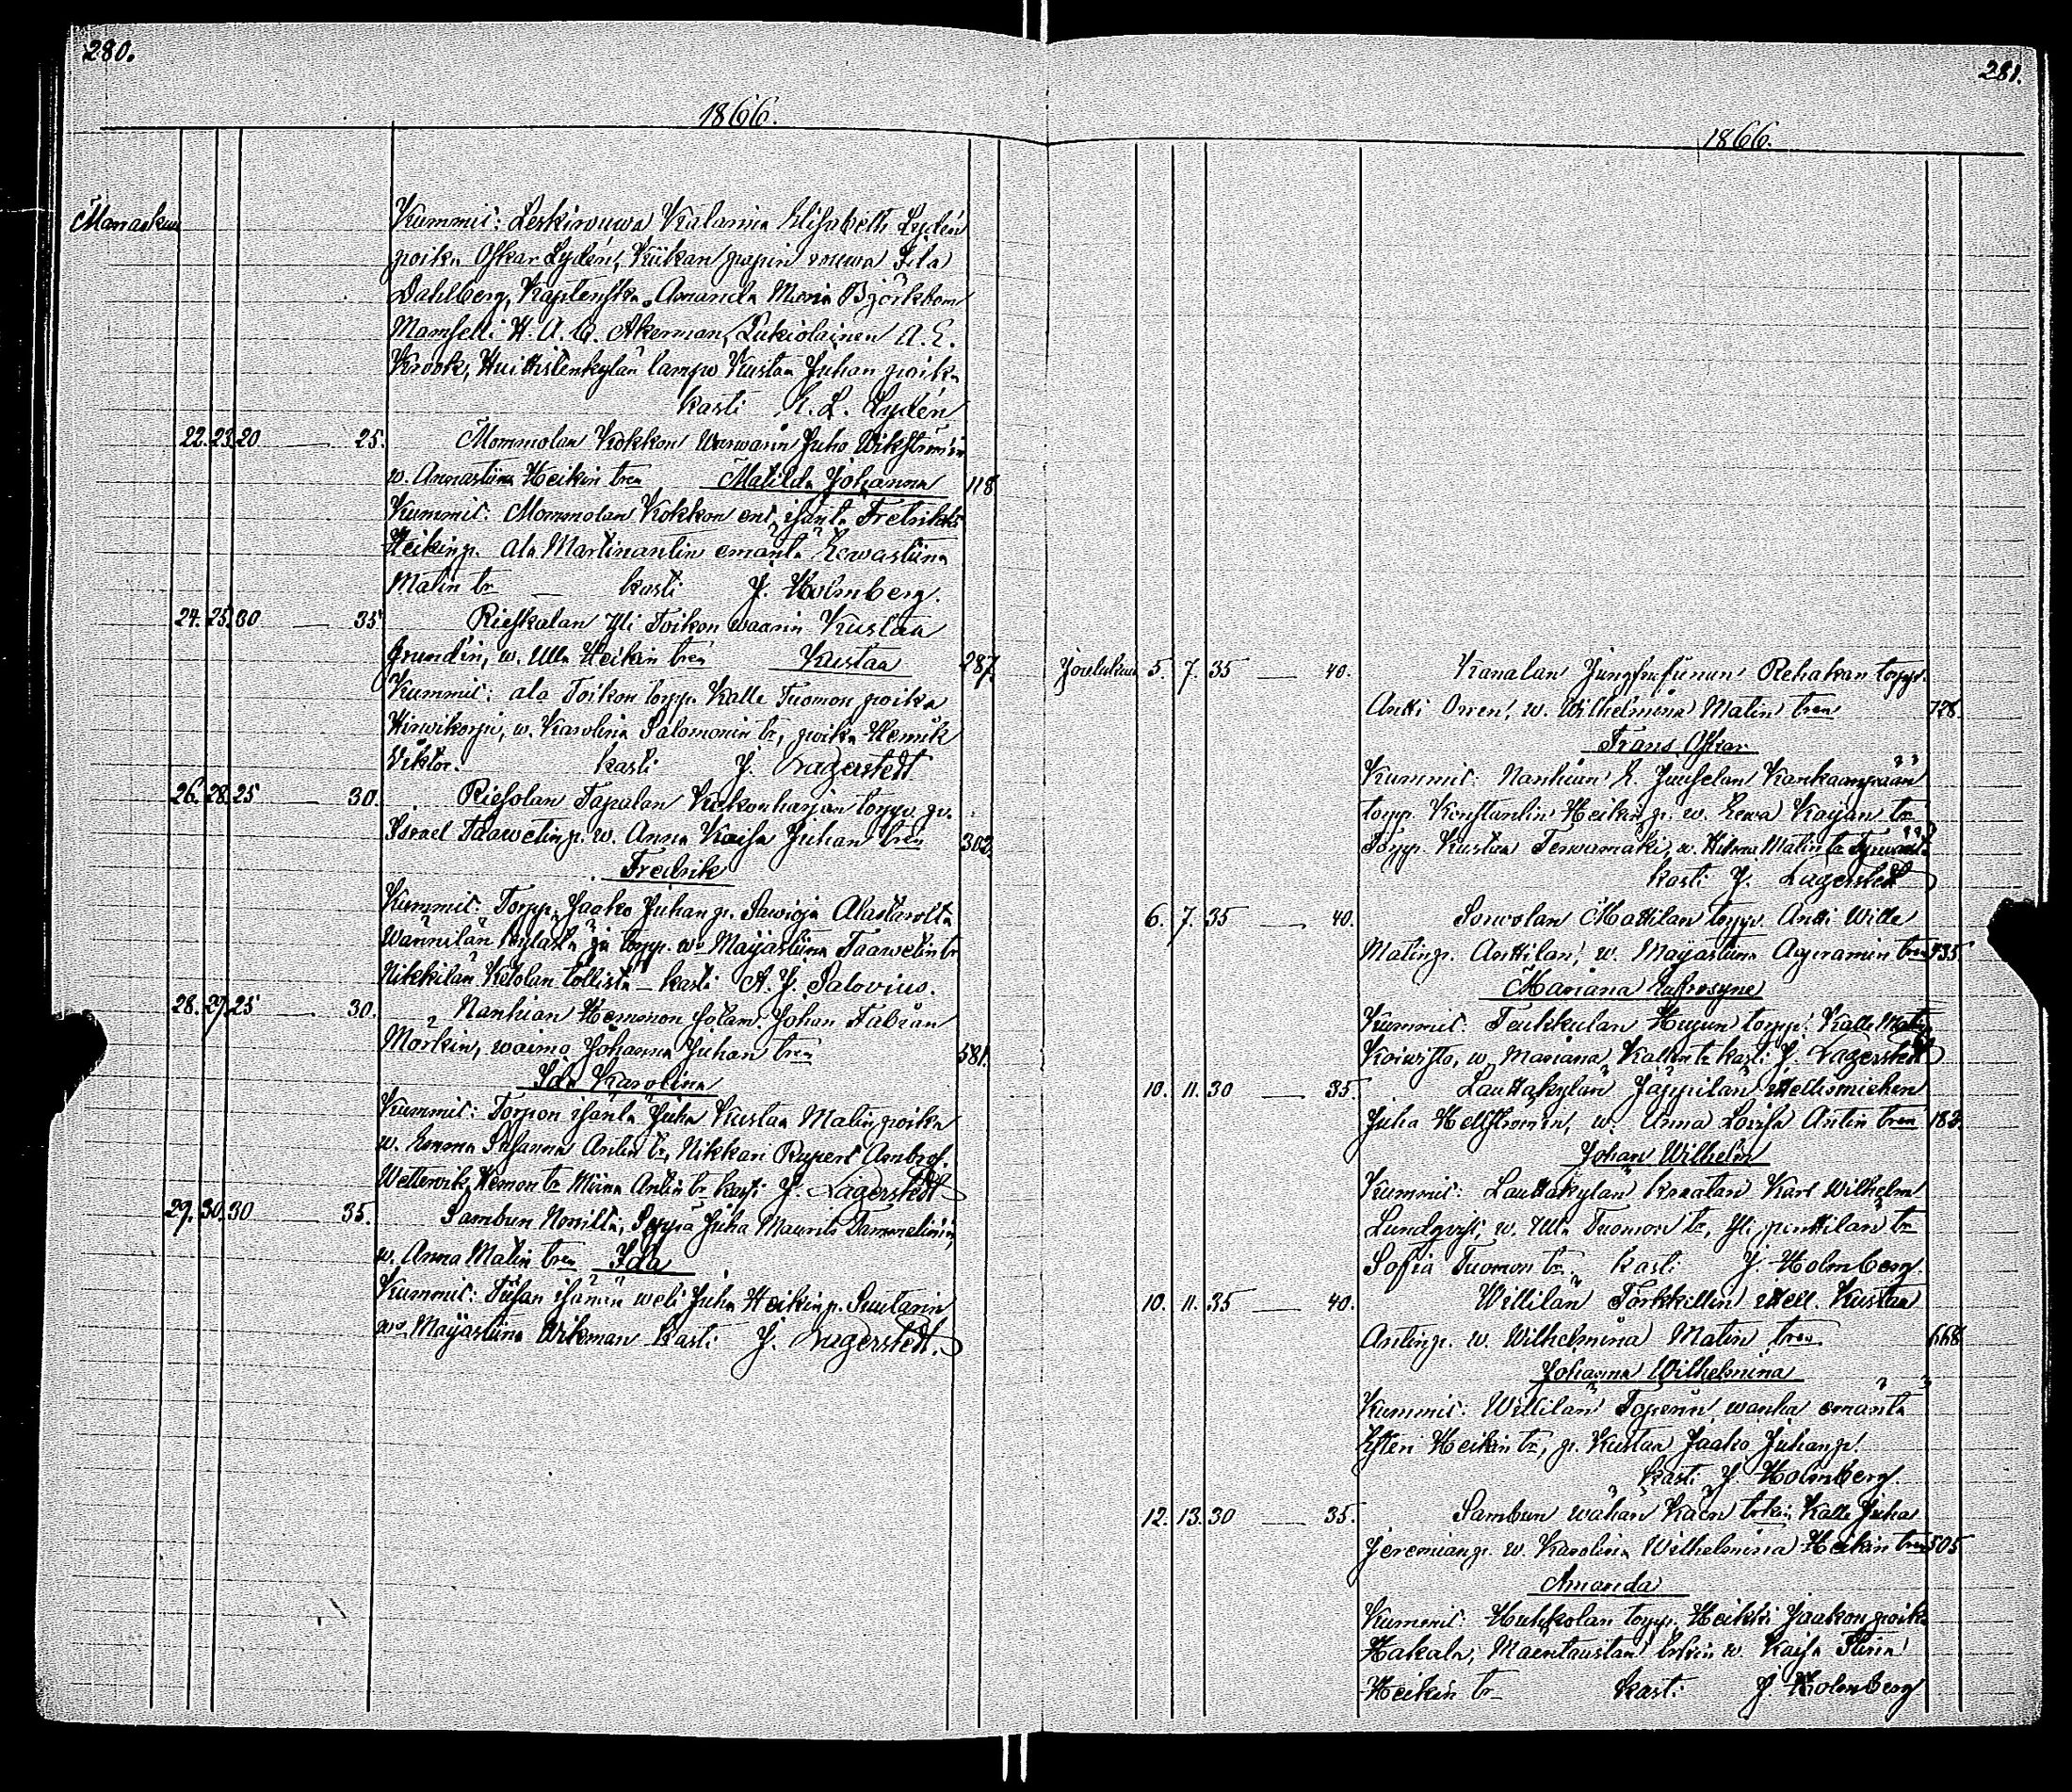 280.
1866.
Marraskuu
Kummit: Leskirouwa Katarina Elisabeth Lydén
poika Oskar Lydén, Kiikan papin rouwa
Dahlberg, Amanda Maria Björkbom
Mamselli H. A. Akerman, Lukiolainen A. E.
Krook, Huittistenkylän lampw Kustaa Juhan poika
kasti E. L. Lydén
22. 23. 20 — 25. Mommolan Kokkon Juho Wikströmin
w. Annastiina Heikin tren Matilda Johanna 118
Kummit: Mommolan Kokkon ent. isäntä Fredrik
Heikin p. ala Martinantin emäntä Eewastiina
Matin tr — kasti J. Holmberg.
24. 25. 30 — 35. Rieskalan Yli Toikon waarin Kustaa
Grundin, w. Ulla Heikin tren Kustaa 287.
Kummit: ala Toikon torpp. Kalle Tuomon poika
Hirwikorpi, w. Karolina Salomonin tr, poika Henrik
Viktor. kasti J. Lagerstedt
26. 28. 25 — 30. Riesolan Tapalan torpp. po.
Israel Taawetin p. w. Anna Kaisa Juhan tren 302.
Fredrik
Kummit: Torpp. Jaako Juhan p. Sawioja Alastarolta
Wännilän kylästä ja torpp. wo Maijastiina Taawetin tr
Nikkilän Ketolan töllistä — kasti A. J. Salovius.
28. 29. 25 — 30. Nanhian Hemmon Johan Fabian
Mörkin, waimo Johanna Juhan tren 581.
Ida Karolina
Kummit: Torpon isäntä Juha Kustaa Matin poika
w. Emma Susanna Antin tr, Nikkari Rupert Ambros.
Wetterwik, Hemon tr Miina Antin tr kasti J. Lagerstedt
29. 30. 30 — 35. Sammun Seppä Juha Maurits Tammelinin,
w. Anna Matin tren Ida
Kummit: isännän weli Juha Heikin p. Suutarin
wo Maijastiina Wikman kasti J. Lagerstedt.
281.
1866.
Joulukuu 5. 7. 35 — 40. Karalan Rehakan torpp.
Antti Orren, w. Wilhelmina Matin tren 728.
Frans Oskar
Kummit: Nanhian E. Juuselan Kankaanpään
torpp. Konstantin Heikin p. w. Eewa Kaijan tr
Torpp. Kustaa Terwamäki, w. Hilma Matin tr
kasti J. Lagerstedt
6. 7. 35 — 40. Sorwolan Mattilan torpp. Antti Wille
Matin p. Anttilan, w. Maijastiina Aapramin tren 735
Mariana Eufrosyne
Kummit: Teukkulan Hujun torpp. Kalle Matin p.
Koiwisto, w. Mariana Kallen tr kasti J. Lagerstedt
10. 11. 30 — 35. Lauttakylän Jäppilän itellismiehen
Juha Hellströmin, w. Anna Lovisa Antin tren 182.
Johan Wilhelm
Kummit: Lauttakylän kraatari Karl Wilhelm
Lundqvist, w. Ulla Tuomon tr, Yli penttilän tr
Sofia Tuomon tr. kasti J. Holmberg
10. 11. 35 — 40. Willilän Torkkillin itell. Kustaa
Antin p. w. Wilhelmina Matin tren 668
Johanna Wilhelmina
Kummit: Willilän wanha emäntä
Esteri Heikin tr, p. Kustaa Jaako Juhan p.
kasti J. Holmberg
12. 13. 30 — 35. Sammun wähän Kalle Juha
Jeremian p. w. Karolina Wilhelmina Heikin tren 505
Amanda
Kummit: Huhkolan torpp. Heikki Jaakon poika
Hakala, Mäentaustan w. Kaisa Stiina
Heikin tr — kasti J. Holmberg